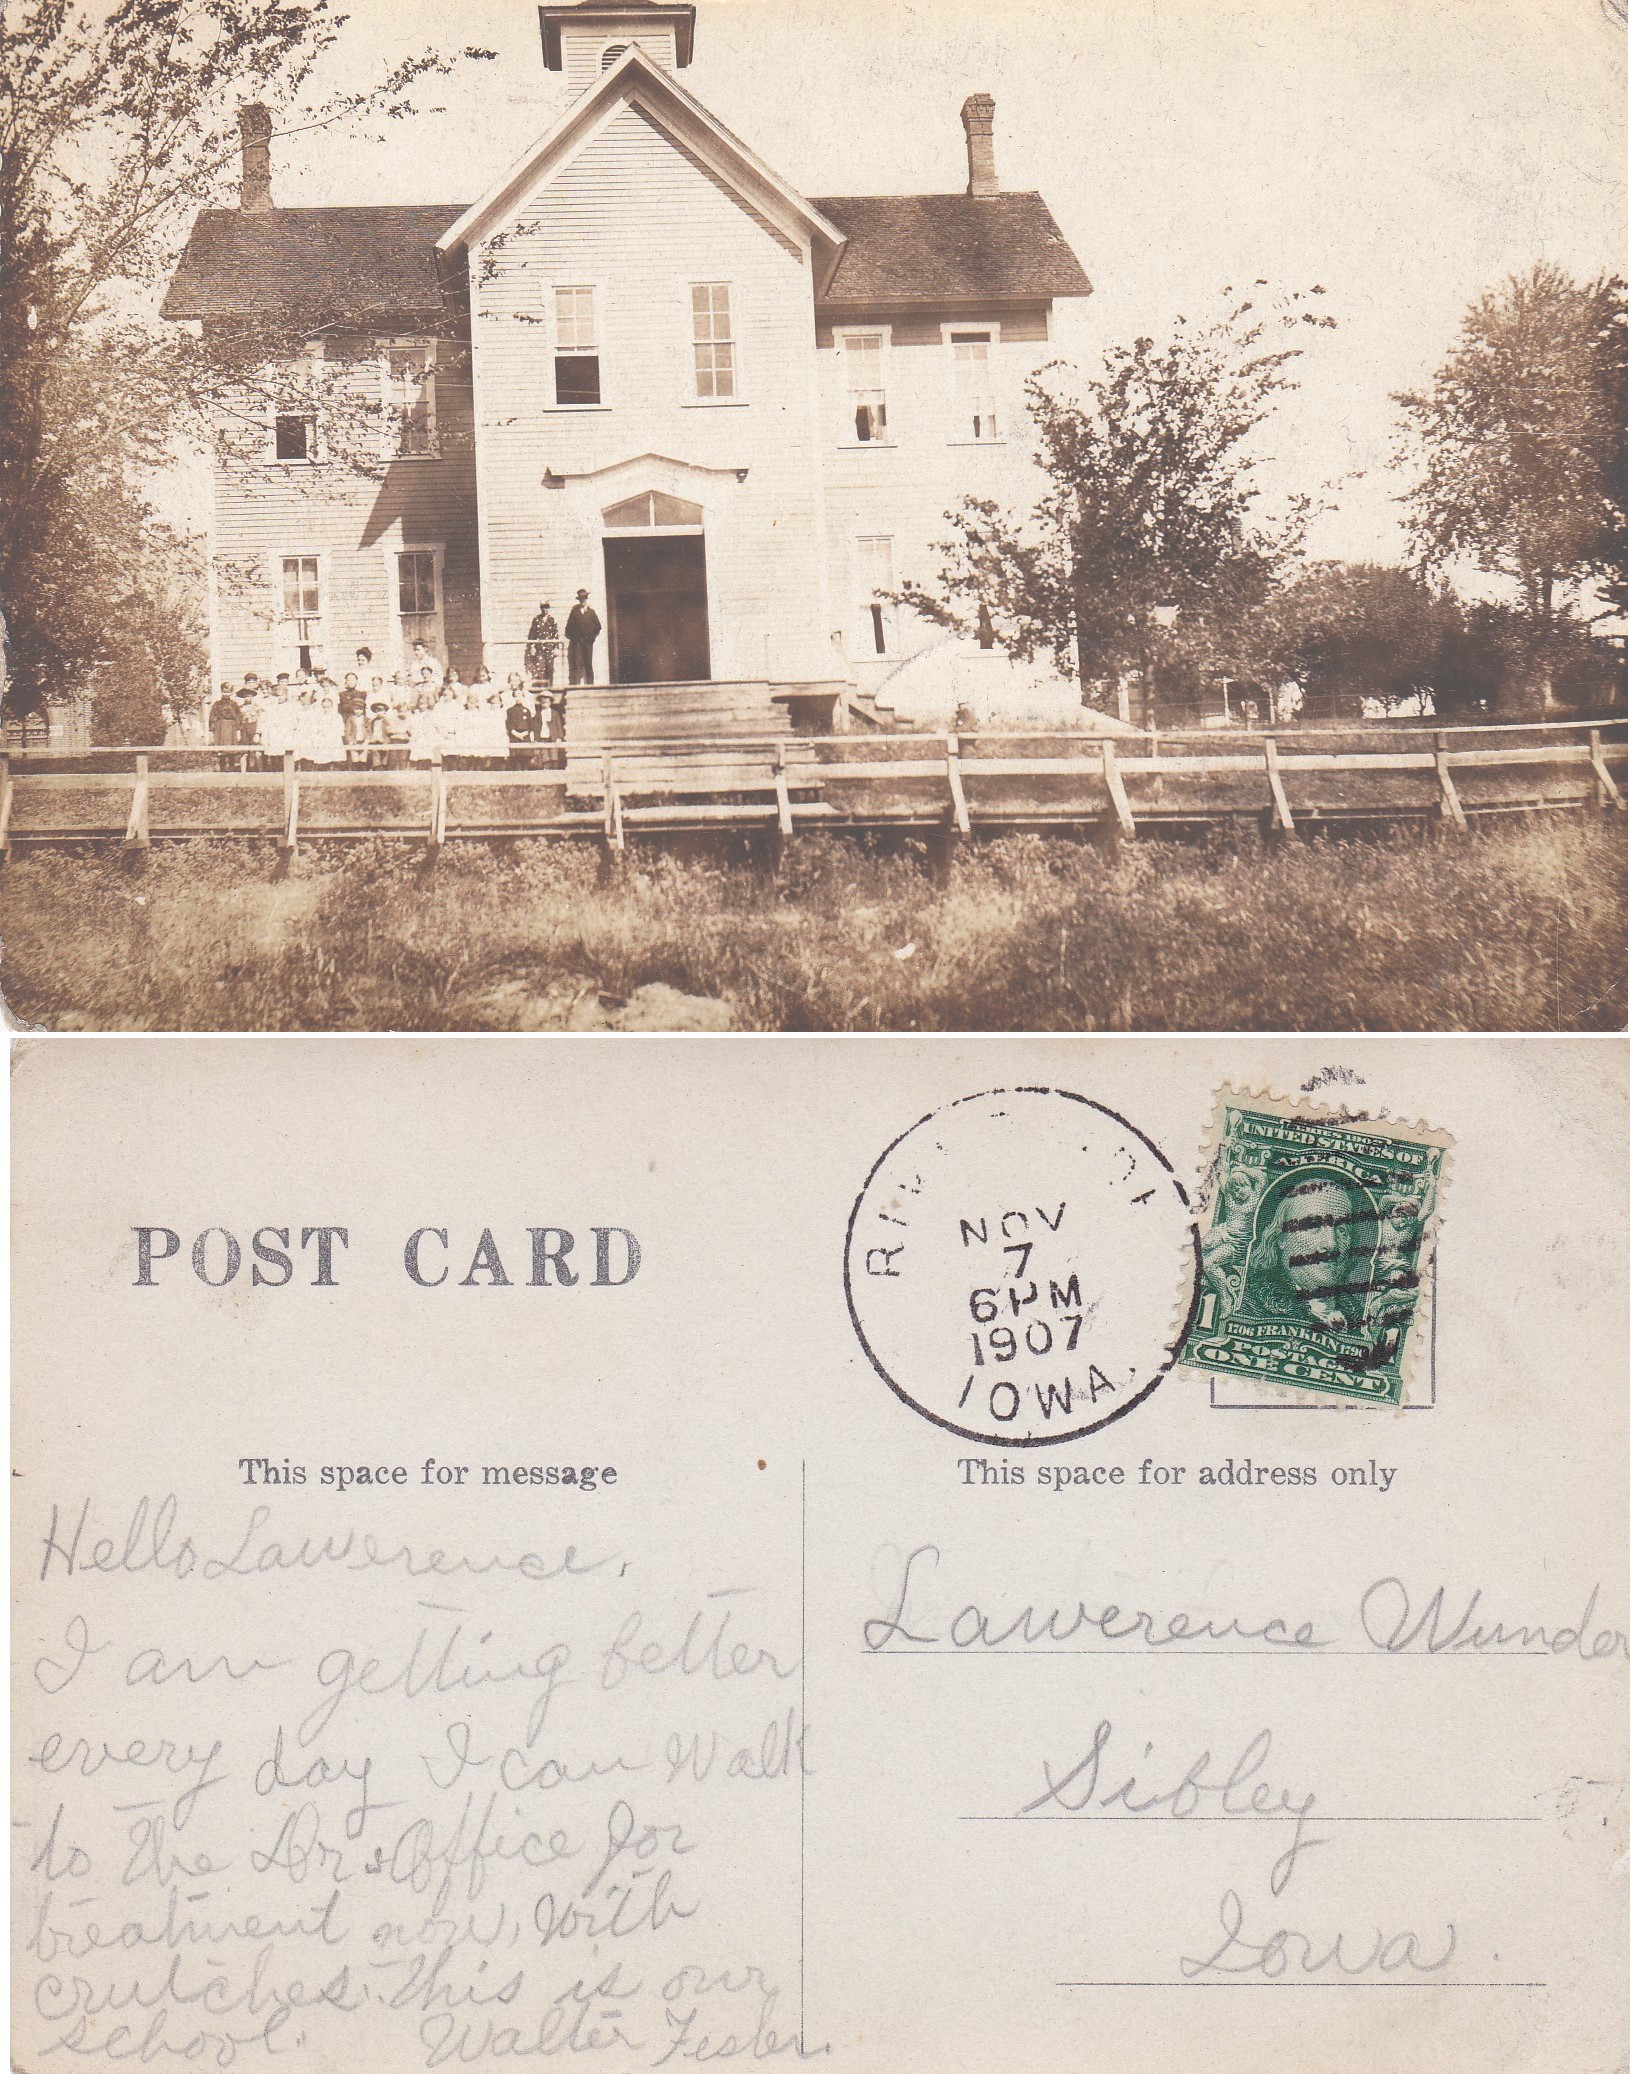 POST CARD
NOV
7
6 PM
1907
IOWA.
SERIES 1902
UNITED STATES OF
AMERICA
1 1
1706 FRANKLIN 1790
POSTAGE
ONE CENT
This space for message
This space for address only
Hello Lawerence,
I am getting better
every day I can Walk
to the Dr s Office for
treatment now, with
crutches. This is our
school. Walter
Lawerence Wunder
Sibley
Iowa.